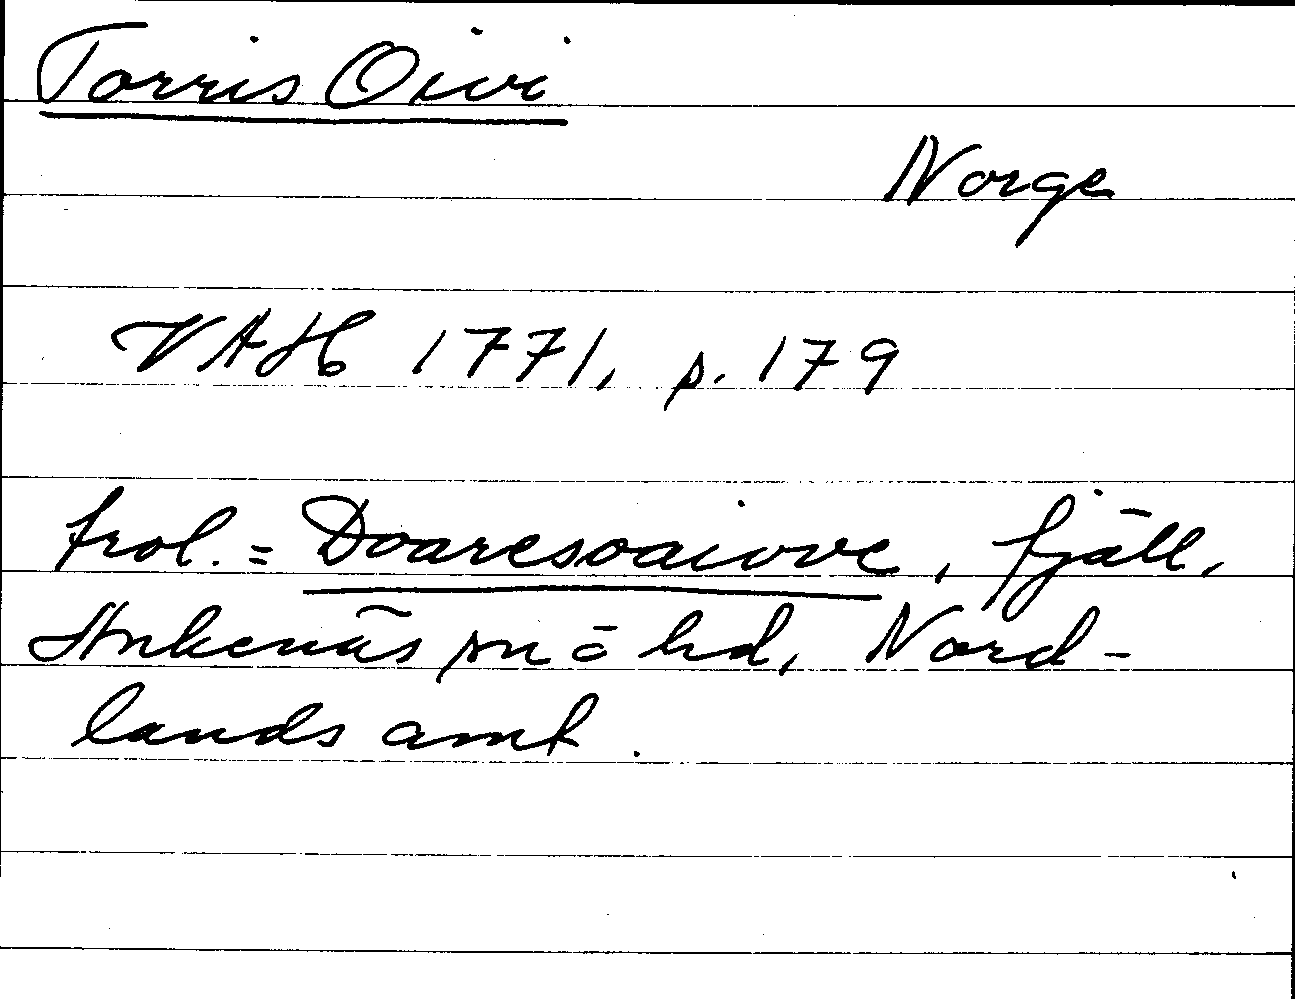 Torris Oivi
Norge
VAH 1771, p. 179
trol. = Doaresoaivve, fjäll,
Ankenäs sn o hd, Nord-
lands amt.